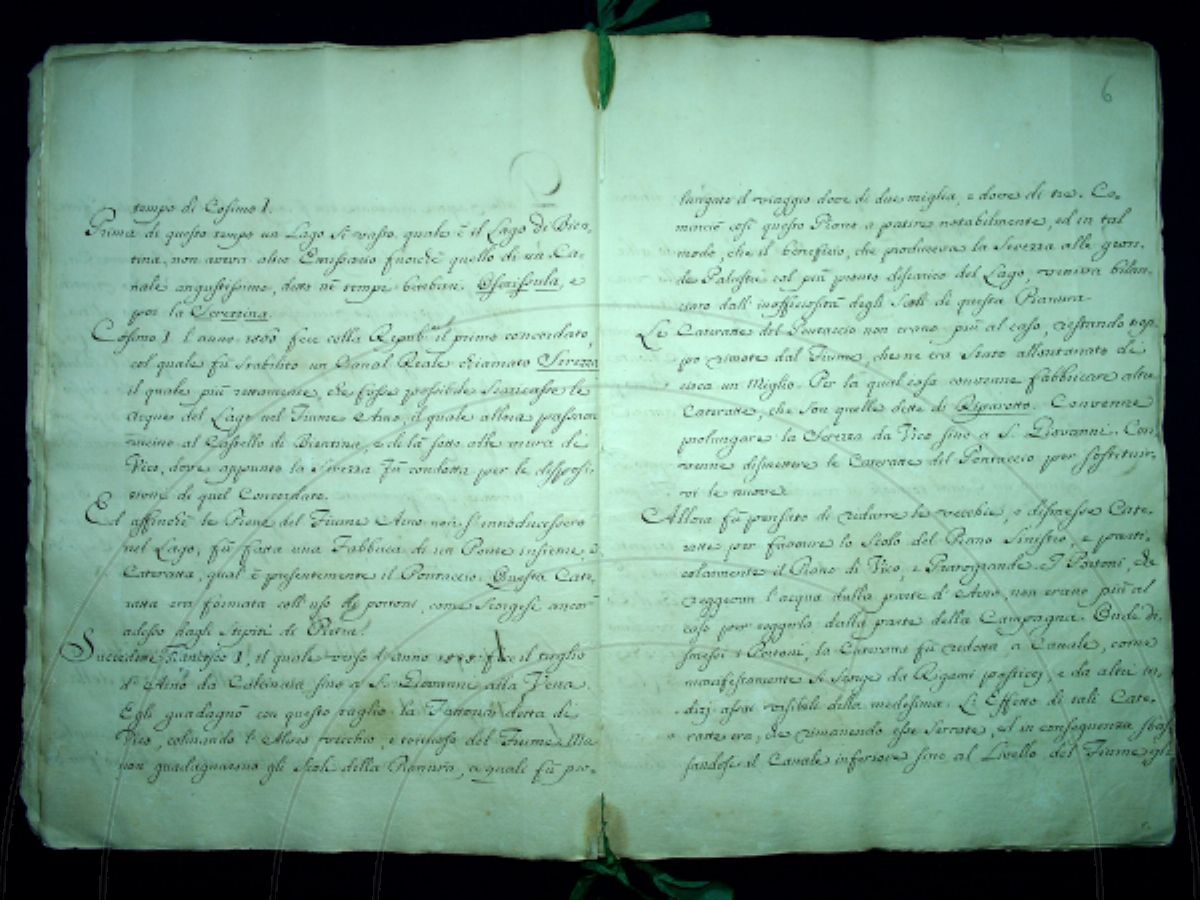 tempo di Cosimo I.
Prima di questo tempo un Lago sì vasto, quale è il Lago di Bien-
tina, non aveva altro Emissario fuorchè quello di un Ca-
nale angustissimo, detto ne' tempi barbari, e
poi la Serezzina.
Cosimo I. l'anno fece colla Repub. il primo concordato,
col quale fù stabilito un Canal Reale chiamato Serezza
il quale più rettamente, che fosse possibile scaricasse le
Acque del Lago nel Fiume Arno, il quale allora passava
vicino al Castello di Bientina, e di là sotto alle mura di
Vico, dove appunto la Serezza fù condotta per le disposi-
zioni di quel Concordato.
Ed affinchè le Piene del Fiume Arno non s'introducessero
nel Lago, fù fatta una Fabbrica di un Ponte insieme, e
Cateratta, qual è presentemente il Pontaccio. Questa Cate-
ratta era formata coll'uso di portoni, come scorgesi ancor
adesso dagli Stipiti di Pietra.
Succedette Francesco I., il quale verso l'anno fece il taglio
d'Arno da Calcinaia sino a S. Giovanni alla Vena.
Egli guadagnò con questo taglio la Fattoria detta di
Vico, colmando l'Alveo vecchio, e tortuoso del Fiume. Ma
non guadagnarono gli Scoli della Pianura, a quali fù pro-
6
lungato il viaggio dove di due miglia, e dove di tre. Co-
minciò così questo Piano a patire notabilmente, ed in tal
modo, che il benefizio, che produceva la Serezza alle gron-
de Palustri col più pronto discarico del Lago, veniva bilan-
ciato dall'inofficiosità degli Scoli di questa Pianura.
Le Cateratte del Pontaccio non erano più al caso, restando trop-
po remote dal Fiume, che ne era stato allontanato di
circa un Miglio. Per la qual cosa convenne fabbricare altre
Cateratte, che son quelle dette di Riparotto. Convenne
prolungare la Serezza da Vico sino a S. Giovanni. Con-
venne dismettere le Cateratte del Pontaccio per sostituir-
vi le nuove.
Allora fù pensato di ridurre le vecchie, e dismesse Cate-
ratte per favorire lo Scolo del Piano Sinistro, e parti-
colarmente il Piano di Vico, e Pratogrande. I Portoni, che
reggevan l'acqua dalla parte d'Arno, non erano più al
caso per reggerla dalla parte della Campagna. Onde di-
smessi i Portoni, la Cateratta fù ridotta a Canale, come
manifestamente si scorge da Rigami posticci, e da altri in-
dizj assai visibili della medesima. L'Effetto di tali Cate-
ratte era, che rimanendo esse serrate, ed in conseguenza sbas-
sandosi il Canale inferiore sino al Livello del Fiume gli